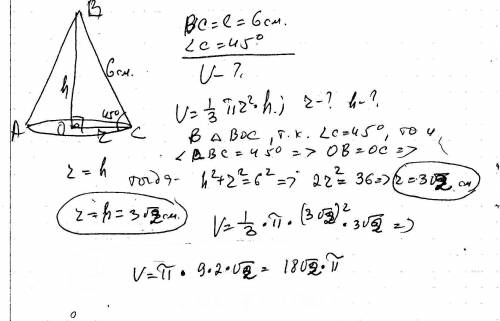 B
h
6 см.
45°
A O r C
BC = l = 6 см.
∠C = 45°
V - ?.
V = 1/3 πr²·h.; r - ? h - ?
В ΔBOC, т.к. ∠C = 45°, то и
∠OBC = 45° => OB = OC =>
r = h тогда h² + r² = 6² => 2r² = 36 => r = 3√2 см
r = h = 3√2 см. V = 1/3 · π · (3√2)² · 3√2 =>
V = π · 9 · 2 · √2 = 18√2 · π